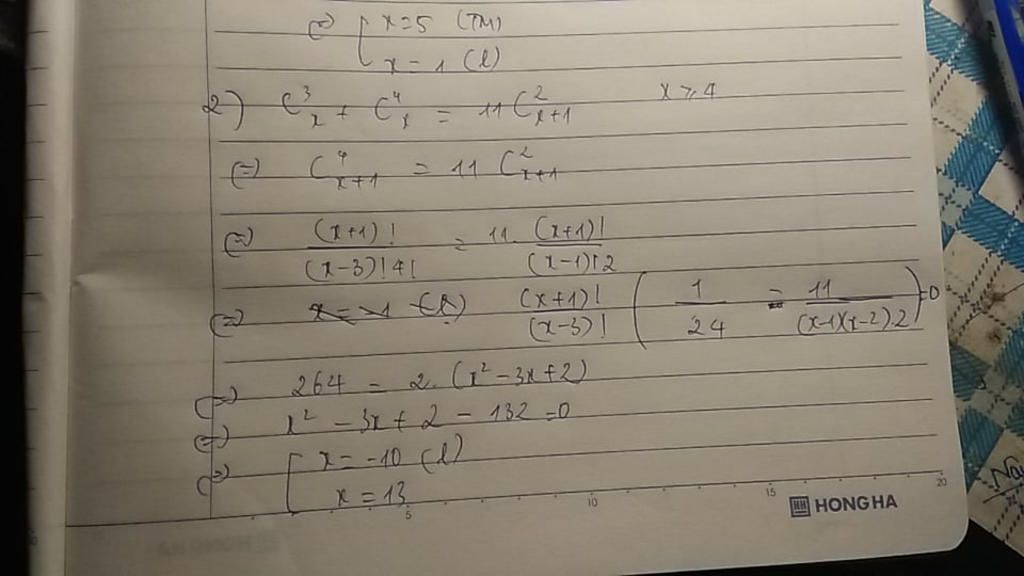 (=) [ x = 5 (TM)
x = 1 (l)
2) C³ₓ + C⁴ₓ = 11 C²ₓ₊₁ x ≥ 4
(=) C⁴ₓ₊₁ = 11 C²ₓ₊₁
(=) (x+1)! / (x-3)! 4! = 11. (x+1)! / (x-1)! 2
(=) (x+1)! / (x-3)! ( 1 / 24 = 11 / (x-1)(x-2).2 ) = 0
(=) 264 = 2. (x² - 3x + 2)
(=) x² - 3x + 2 - 132 = 0
(=) [ x = -10 (l)
x = 13
5 10 15 20
HONG HA